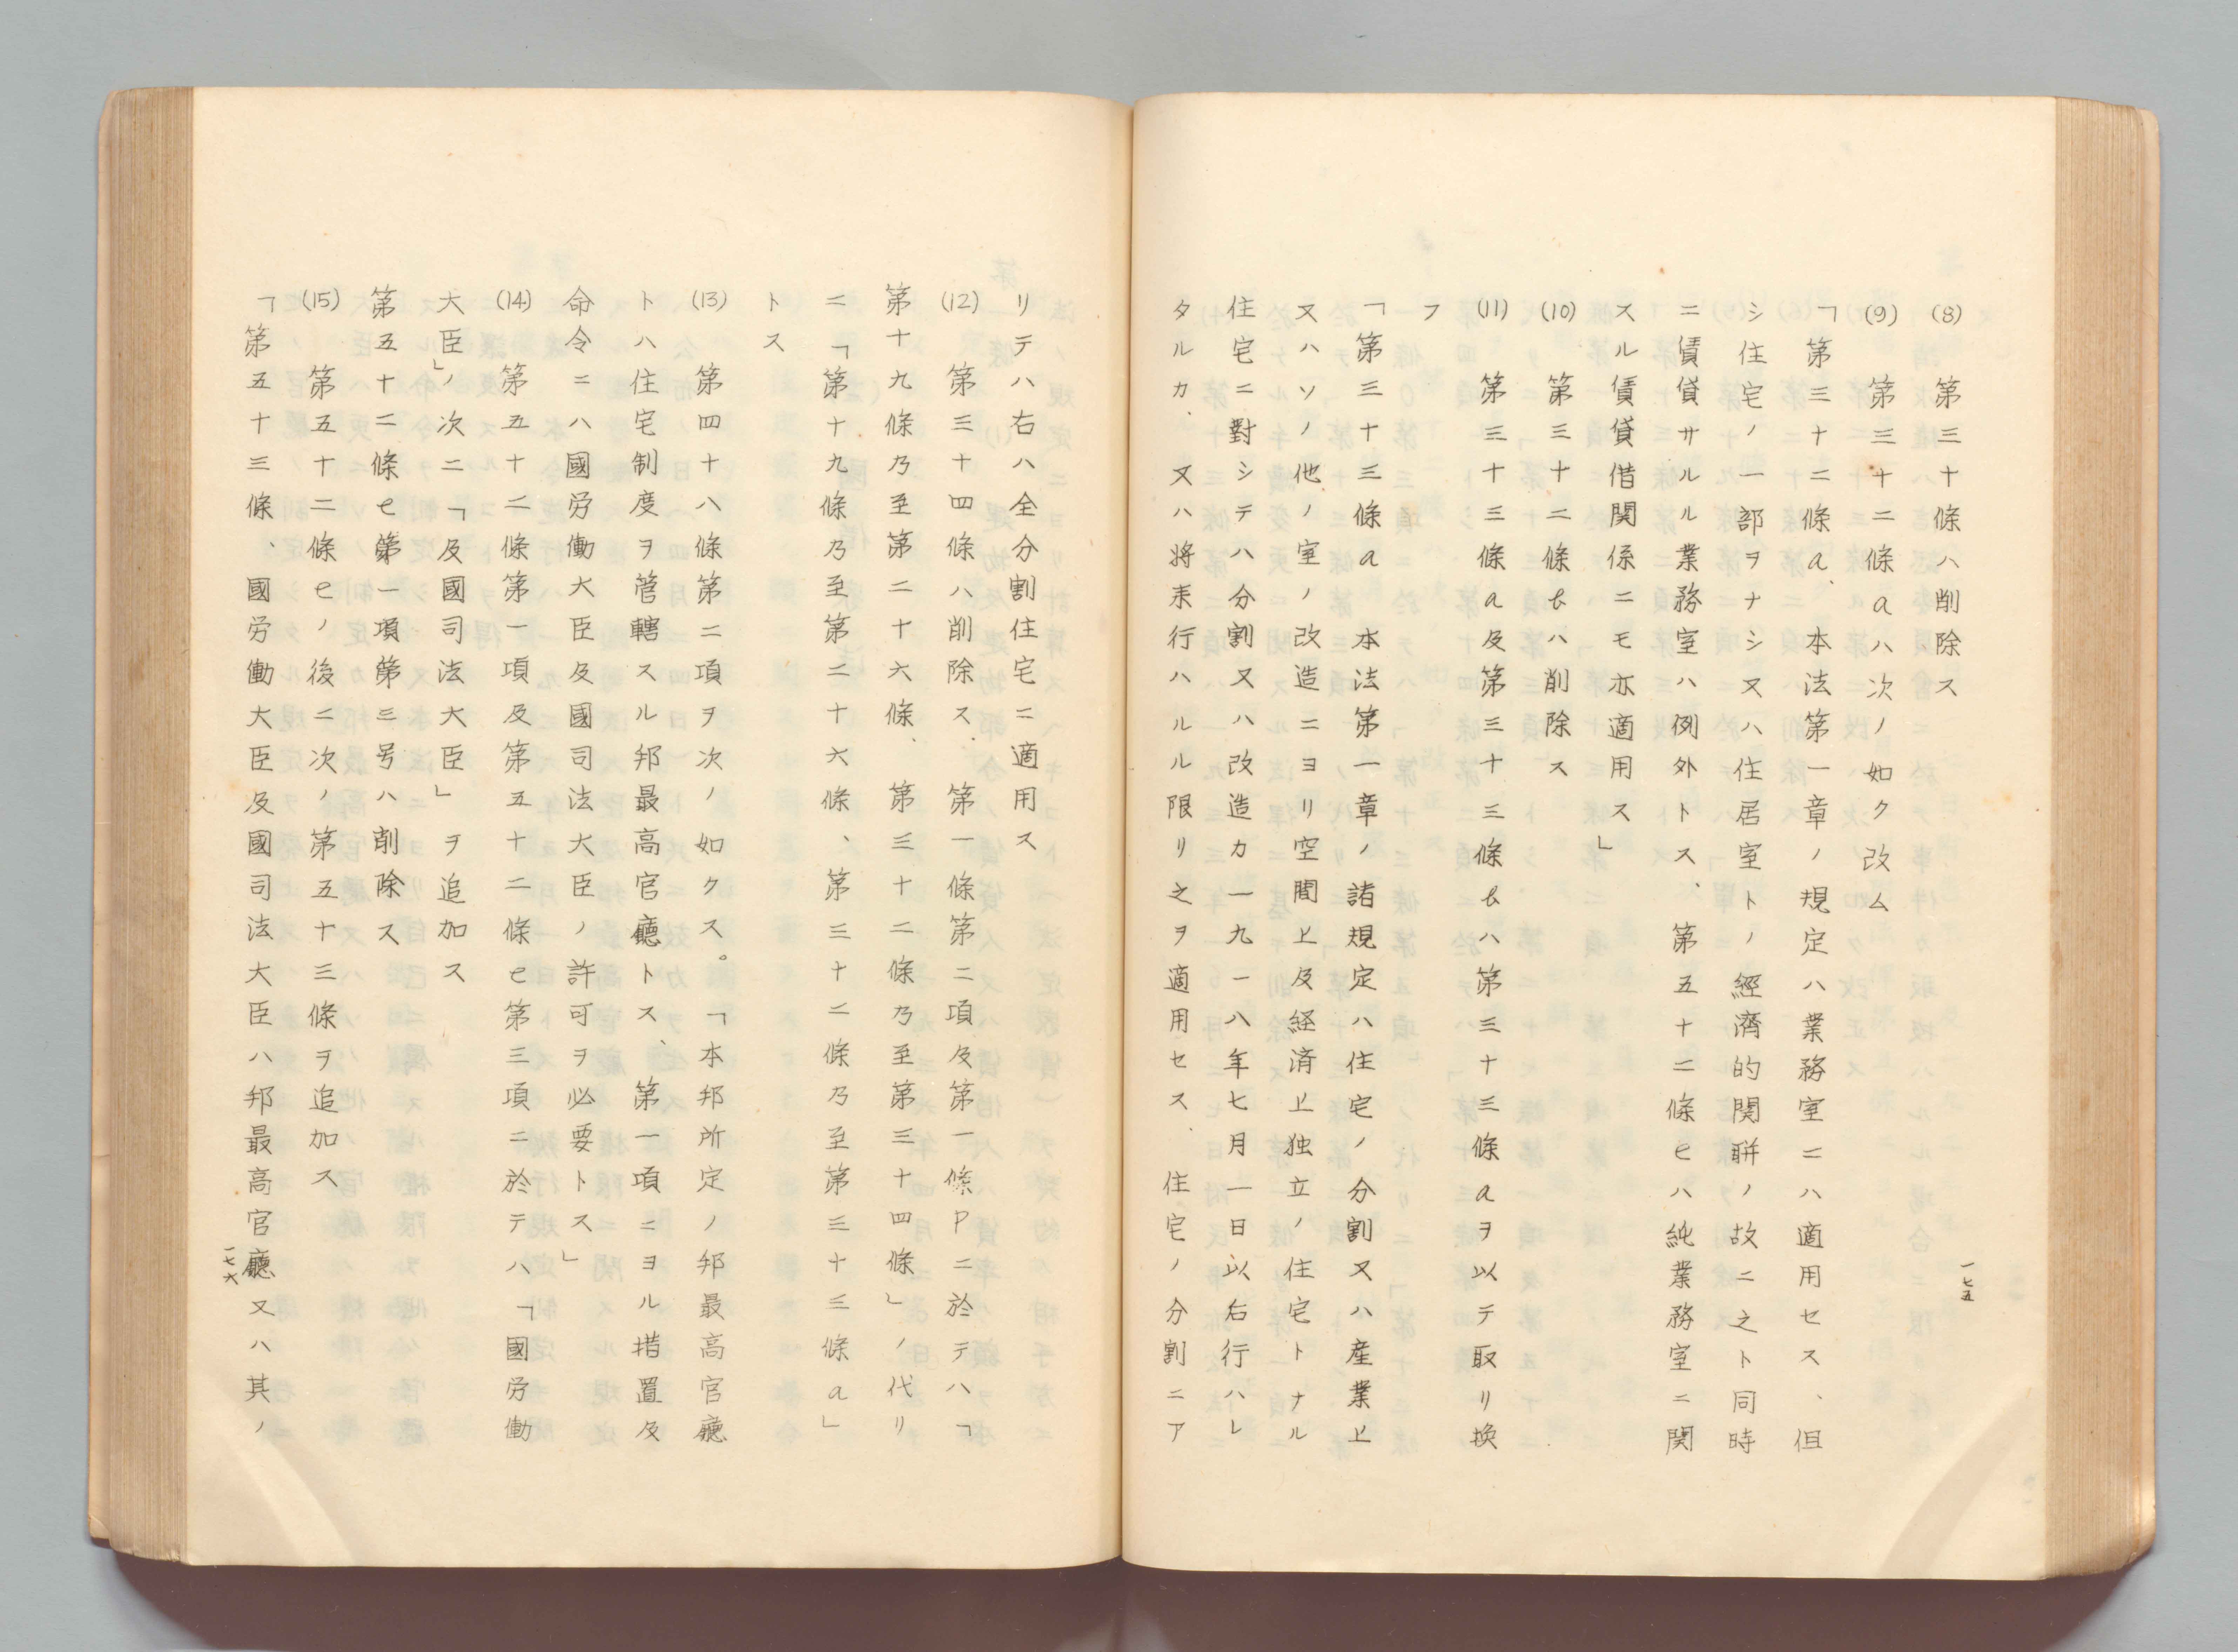 (8)　第三十條ハ削除ス
(9)　第三十二條aハ次ノ如ク改ム
「第三十二條a、本法第一章ノ規定ハ業務室ニハ適用セス、但
シ住宅ノ一部ヲナシ又ハ住居室トノ經濟的関聯ノ故ニ之ト同時
ニ賃貸サルル業務室ハ例外トス、第五十二條eハ純業務室ニ関
スル賃貸借関係ニモ亦適用ス」
(10)　第三十二條bハ削除ス
(11)　第三十三條a及第三十三條bハ第三十三條aヲ以テ取リ換
フ
「第三十三條a　本法第一章ノ諸規定ハ住宅ノ分割又ハ産業上
又ハソノ他ノ室ノ改造ニヨリ空間上及経済上独立ノ住宅トナル
住宅ニ對シテハ分割又ハ改造カ一九一八年七月一日以右行ハレ
タルカ、又ハ将来行ハルル限リ之ヲ適用セス、住宅ノ分割ニア
一七五
リテハ右ハ全分割住宅ニ適用ス
(12)　第三十四條ハ削除ス、第一條第二項及第一條Pニ於テハ「
第十九條乃至第二十六條、第三十二條乃至第三十四條」ノ代リ
ニ「第十九條乃至第二十六條、第三十二條乃至第三十三條a」
トス
(13)　第四十八條第二項ヲ次ノ如クス。「本邦所定ノ邦最高官廳
トハ住宅制度ヲ管轄スル邦最高官廳トス、第一項ニヨル措置及
命令ニハ國労働大臣及國司法大臣ノ許可ヲ必要トス」
(14)　第五十二條第一項及第五十二條e第三項ニ於テハ「國労働
大臣」ノ次ニ「及國司法大臣」ヲ追加ス
第五十二條e第一項第三号ハ削除ス
(15)　第五十二條eノ後ニ次ノ第五十三條ヲ追加ス
「第五十三條、國労働大臣及國司法大臣ハ邦最高官廳又ハ其ノ
一七六